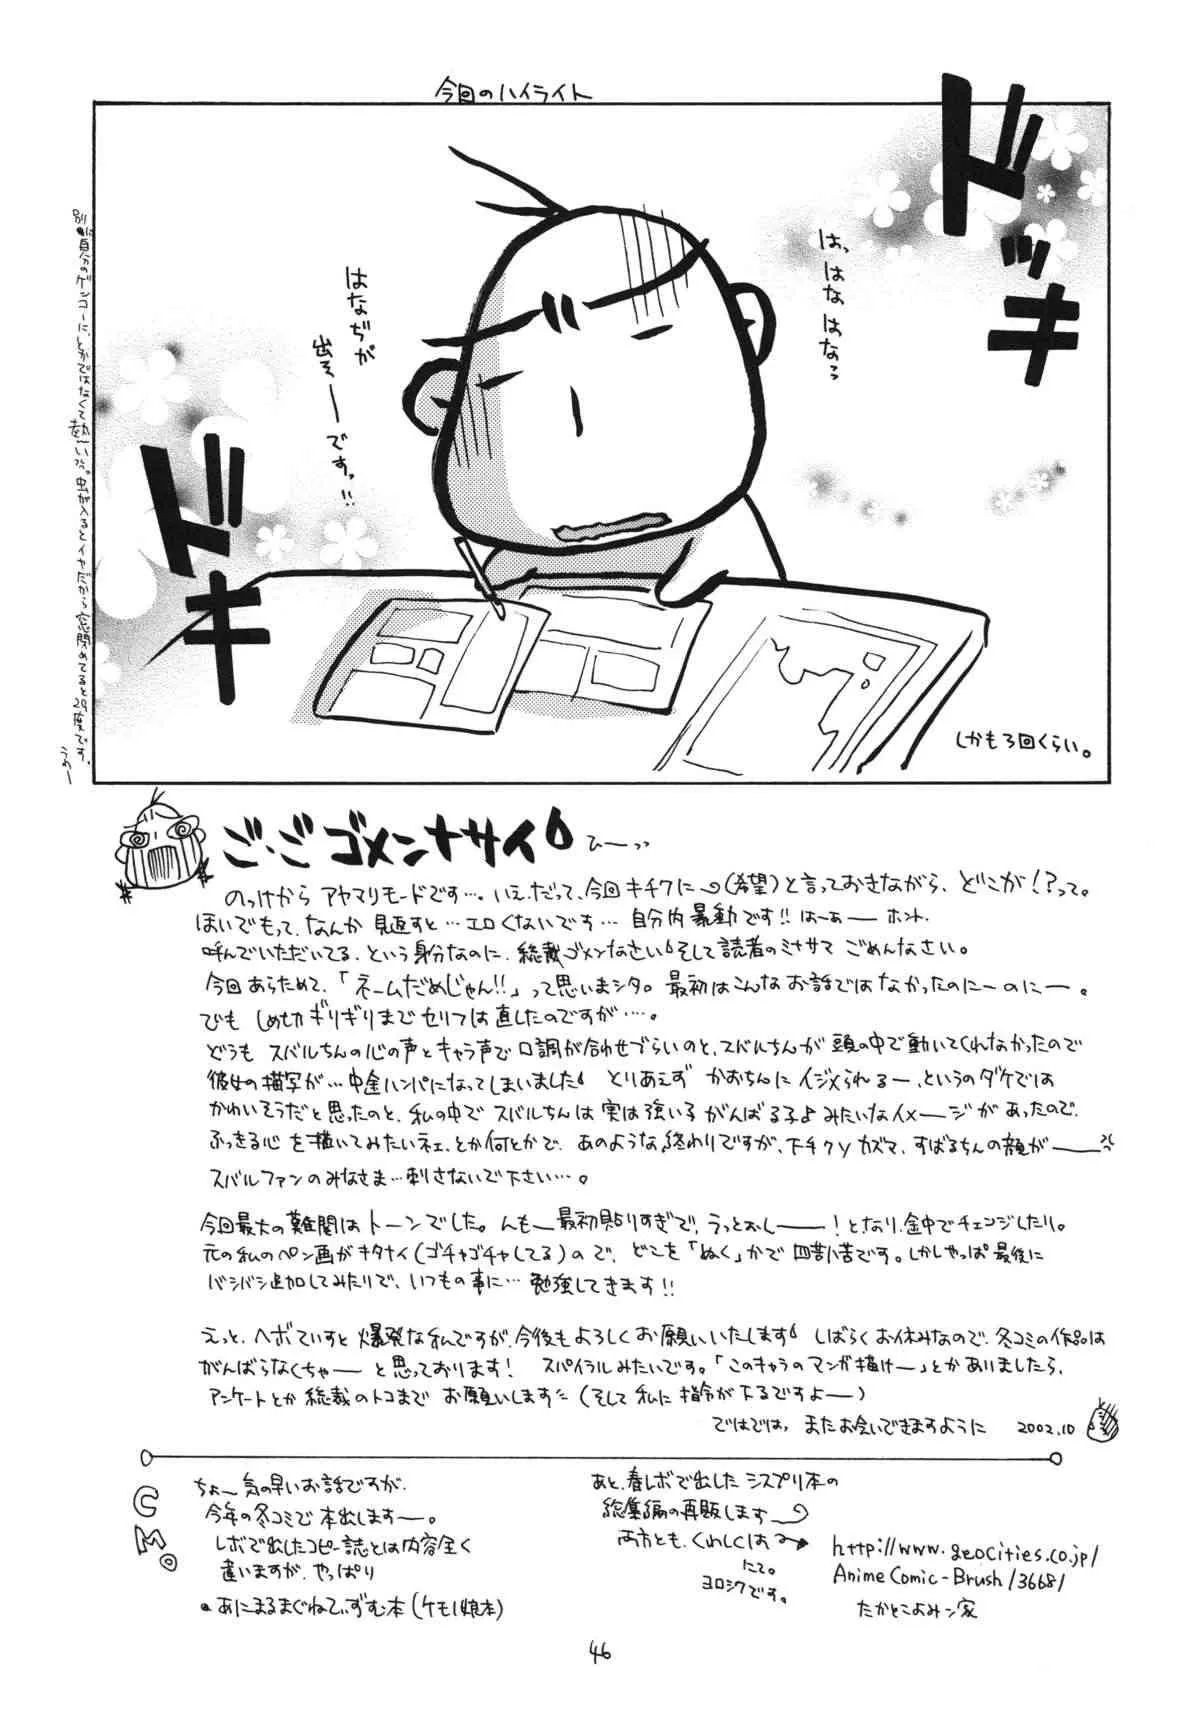 今回のハイライト
ドッキ
ドキ
は、はなはなろ
はなぢが
出そーですっ!!
別に自分のゲンコーに、とかではなくて
虫が入るとイヤだから窓閉めてると29度です。
しかも3回くらい。
ご・ごゴメンナサイ
ひーっっ
のっけからアヤマリモードです…。いえ、だって、今回キチクに〜(希望)と言っておきながら、どこが!?って。
ほいでもって、なんか見返すと…エロくないです…自分内暴動です!!はーぁーホント、
呼んでいただいてる、という身分なのに、総裁ゴメンなさい そして読者のミナサマごめんなさい。
今回あらためて、「ネームだめじゃん!!」って思いまシタ。最初はこんなお話ではなかったのにーのにー。
でもしめ切ギリギリまでセリフは直したのですが…。
どうもスバルちんの心の声とキャラ声で口調が合わせづらいのと、スバルちんが頭の中で動いてくれなかったので
彼女の描写が…中途ハンパになってしまいました とりあえずかおちんにイジメられるー、というのダケでは
かわいそうだと思ったのと、私の中でスバルちんは実は強い子がんばる子よみたいなイメージがあったので、
ふっきる心を描いてみたいネェ、とか何とかで、あのような終わりですが、下チクソカズマ、すばるちんの顔がー
スバルファンのみなさま…刺さないで下さい…。
今回最大の難関はトーンでした。んもー最初貼りすぎで、うっとおしーー!となり、途中でチェンジしたり。
元の私のペン画がキタナイ(ゴチャゴチャしてる)ので、どこを「ぬく」かで四苦八苦です。しかしやっぱ最後に
バシバシ追加してみたりで、いつもの事に…勉強してきます!!
えっと、ヘボていすと爆発な私ですが、今後もよろしくお願いいたします しばらくお休みなので、冬コミの作品は
がんばらなくちゃーと思っております! スパイラルみたいです。「このキャラのマンガ描けー」とかありましたら、
アンケートとか総裁のトコまでお願いします(そして私に指令が下るですよー)
ではでは、またお会いできますように 2002.10
CM。
ちょー気の早いお話ですが、
今年の冬コミで本出しますー。
レボで出したコピー誌とは内容全く
違いますが、やっぱり
あにまるまぐねてぃずむ本(ケモノ娘本)
あと、春レボで出したシスプリ本の
総集編の再販します
両方とも、くわしくは
にて。
ヨロシクです。
http://www.geocities.co.jp/
AnimeComic-Brush/3668/
たかとこよみン家
46